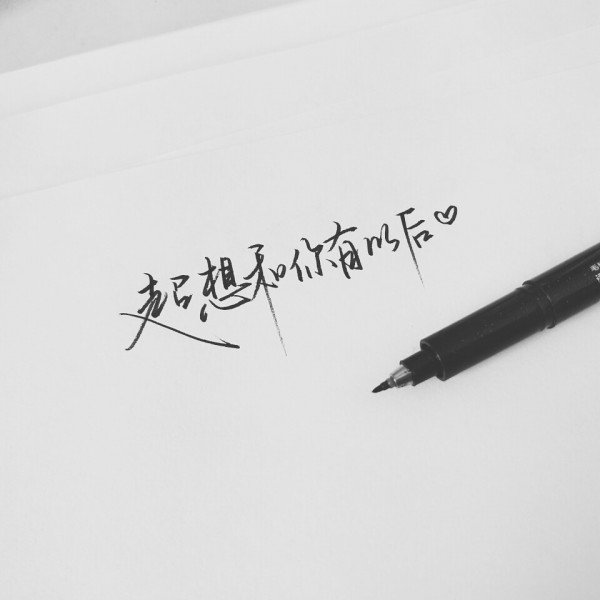 超想和你有以后♡